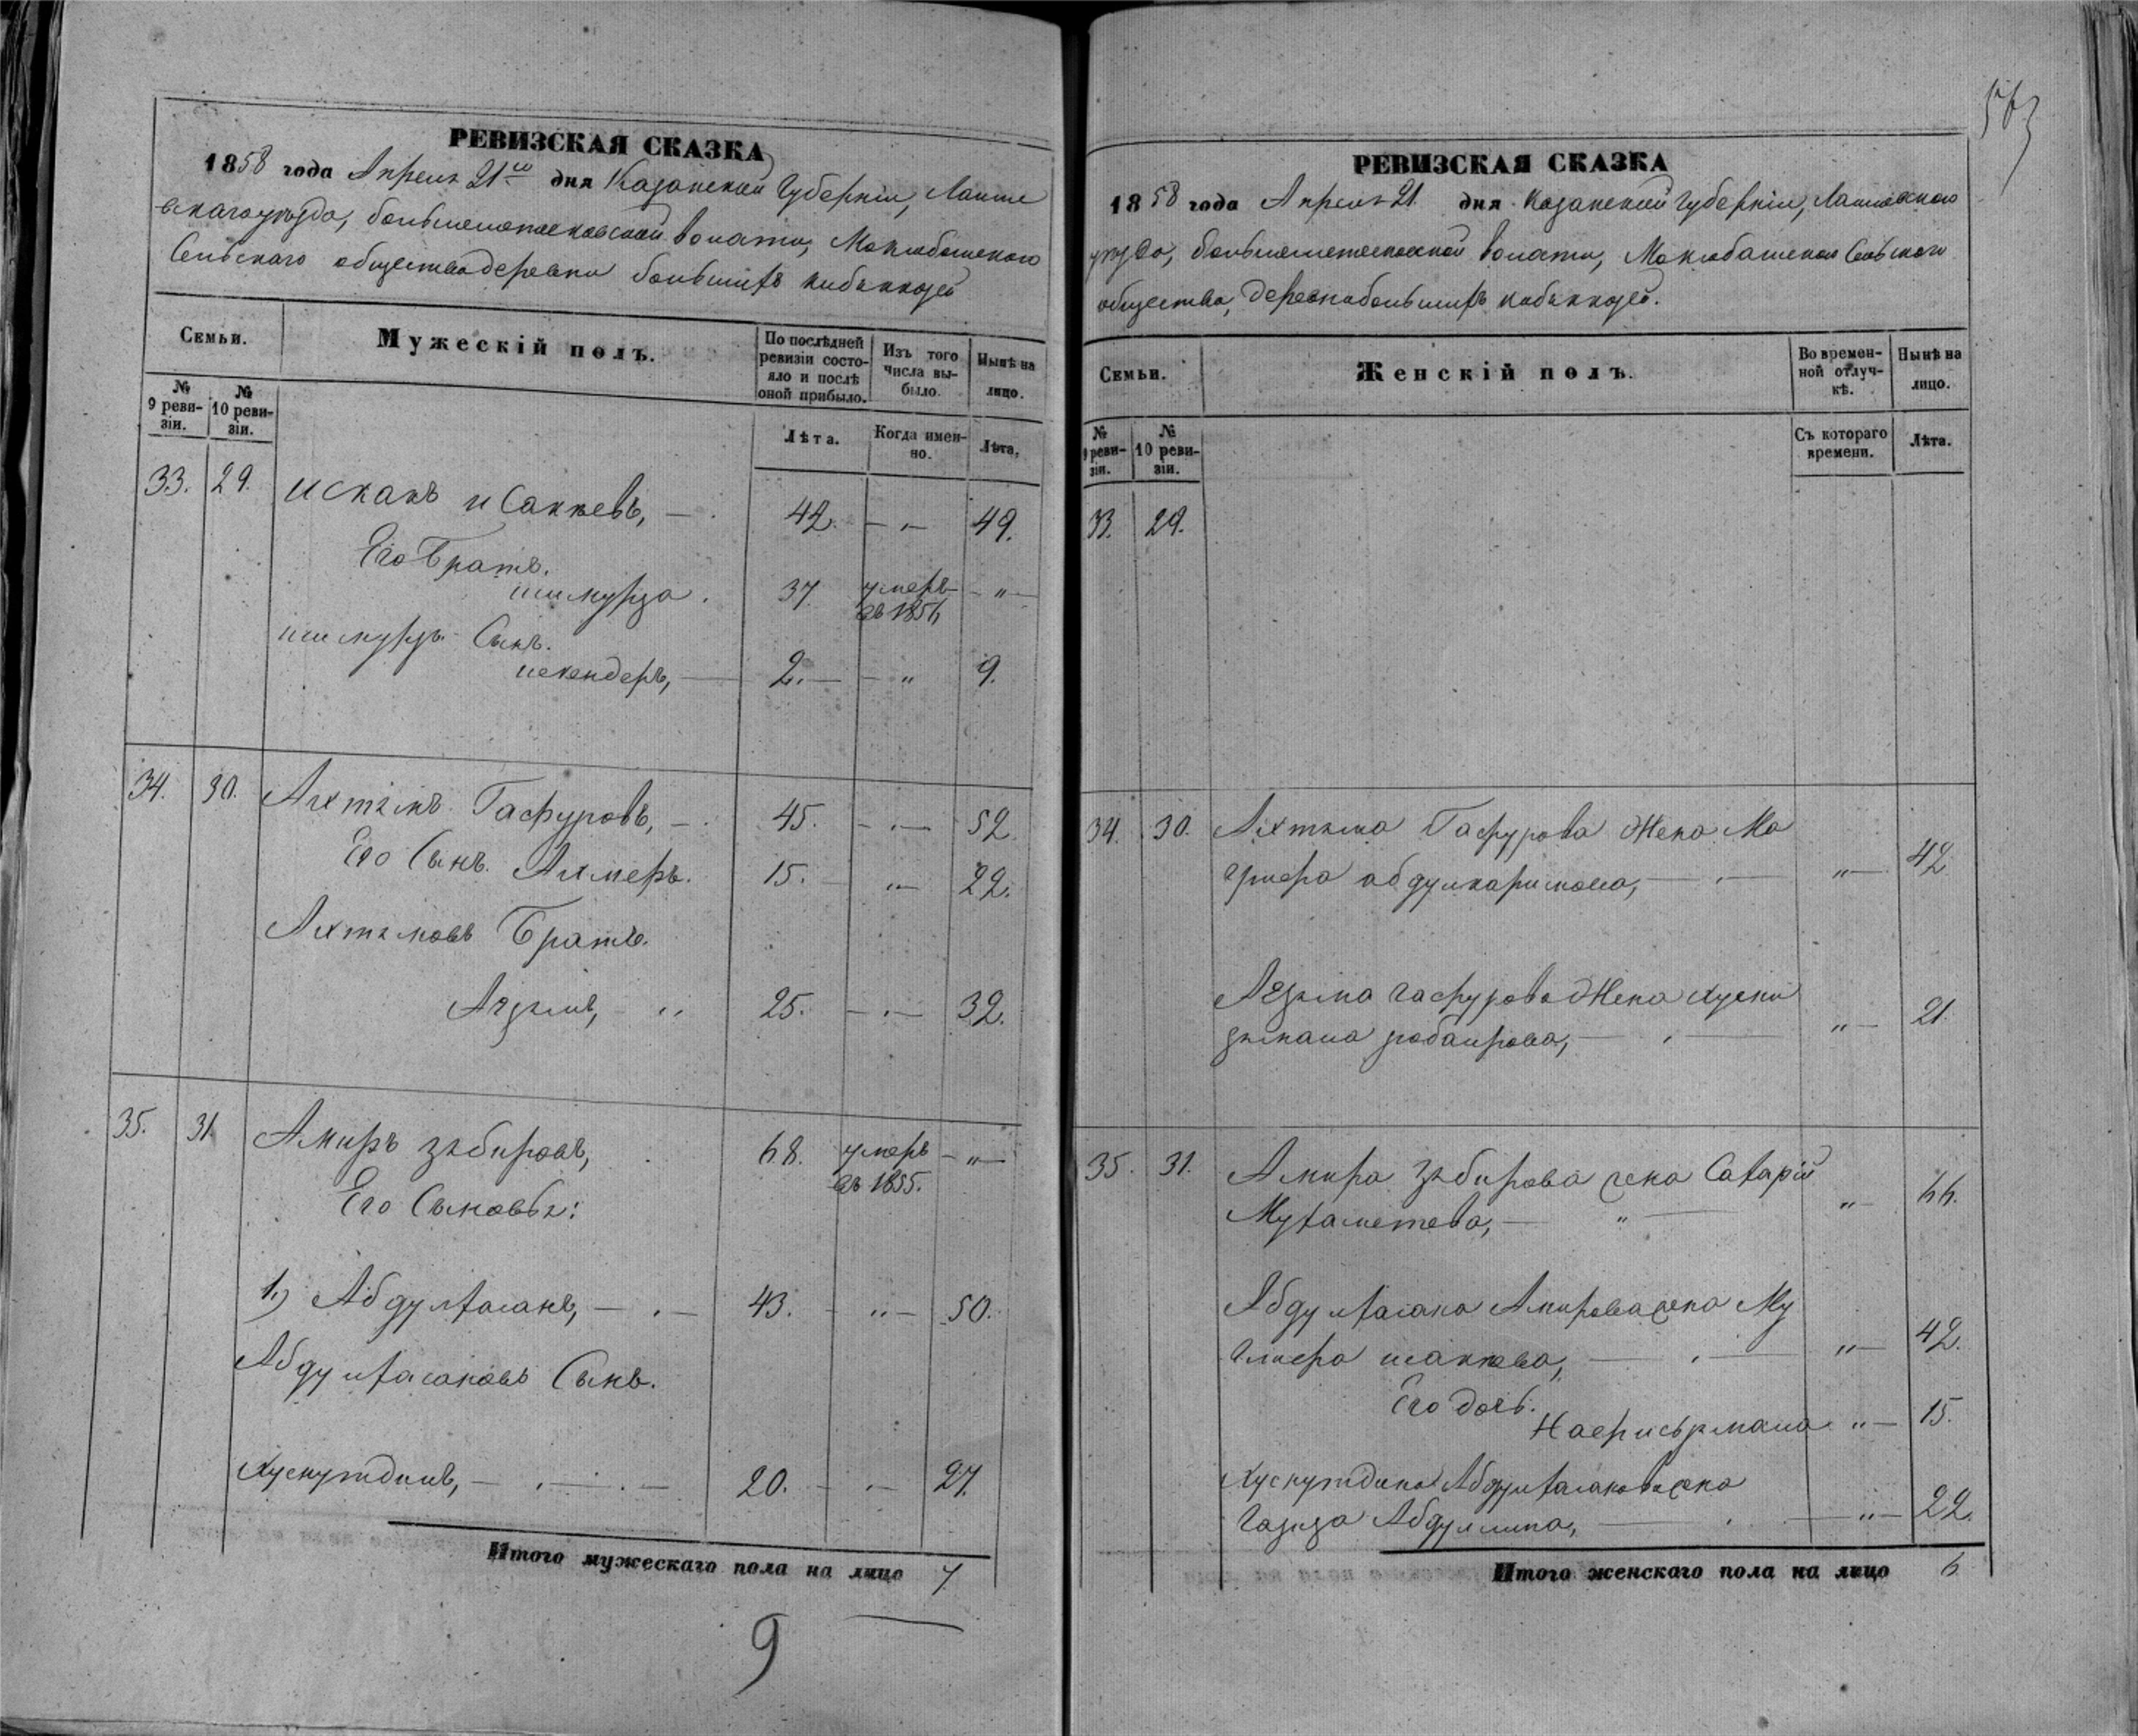 563
РЕВИЗСКАЯ СКАЗКА
1858 года Апреля 21го дня Казанской Губерніи, Лаише
вскаго уезда, большеметесковской волости, Моклюбашскаго
Сельскаго общества деревни большихъ кибякозей
Семьи.
Мужескій полъ.
По послѣдней ревизіи состояло и послѣ оной прибыло.
Изъ того числа выбыло.
Нынѣ на лицо.
№ 9 ревизіи.
№ 10 ревизіи.
Лѣта.
Когда именно.
Лѣта.
33. 29. Искакъ Исакаевъ, 42. — „ — 49.
Его Братъ.
ишмурза. 37 умеръ въ 1856 — „ —
ишмурзы Сынъ.
искендеръ, 2. — „ 9.
34. 30. Ахтямъ Гафуровъ, 45. — „ — 52
Его Сынъ. Ахмеръ. 15. „ — 22.
Ахтямовъ Братъ.
Агзямъ, 25. — „ — 32.
35. 31. Амиръ зябировъ, 68. умеръ въ 1855. — „ —
Его Сыновья:
1.) Абдулхасанъ, 43. „ — 50.
Абдулхасановъ Сынъ.
Хуснутдинъ, 20. — „ — 27.
Итого мужескаго пола на лицо 7
9
РЕВИЗСКАЯ СКАЗКА
1858 года Апреля 21 дня Казанской Губерніи, Лаишевскаго
уезда, большеметесковской волости, Моклюбашскаго Сельскаго
общества, деревни большихъ кибякозей.
Семьи.
Женскій полъ.
Во временной отлучкѣ.
Нынѣ на лицо.
№ 9 ревизіи.
№ 10 ревизіи.
Съ котораго времени.
Лѣта.
33. 29.
34. 30. Ахтяма Гафурова Жена Ма
гриера абдулкаримова, „ — 42
Агзяма гафурова Жена хусни
зямала забаирова, „ — 21.
35. 31. Амира Зябирова жена Сахарій
Мухаметева, „ „ — 66.
Абдулхасана Амирова жена Му
исакаева, „ — 42.
Его дочь.
15.
Хуснутдина Абдулхасанова жена
Газиза Абдуллина, „ — 22.
Итого женскаго пола на лицо 6